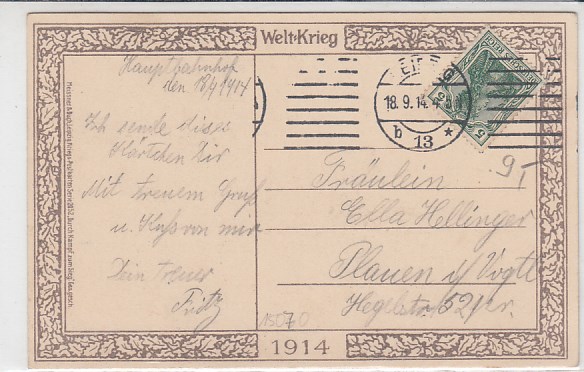 Welt-Krieg
Hauptbahnhof
den 18/9 1914
Ich sende dieses
Kärtchen dir
Mit treuem Gruß
u. Kuss von mir
Dein treuer
Fritz
LEIPZIG
18.9.14.
b 13 *
9,-
Fräulein
Ella Hellinger
Plauen i/Vogtl
Hegelstr. 52
15070
1914